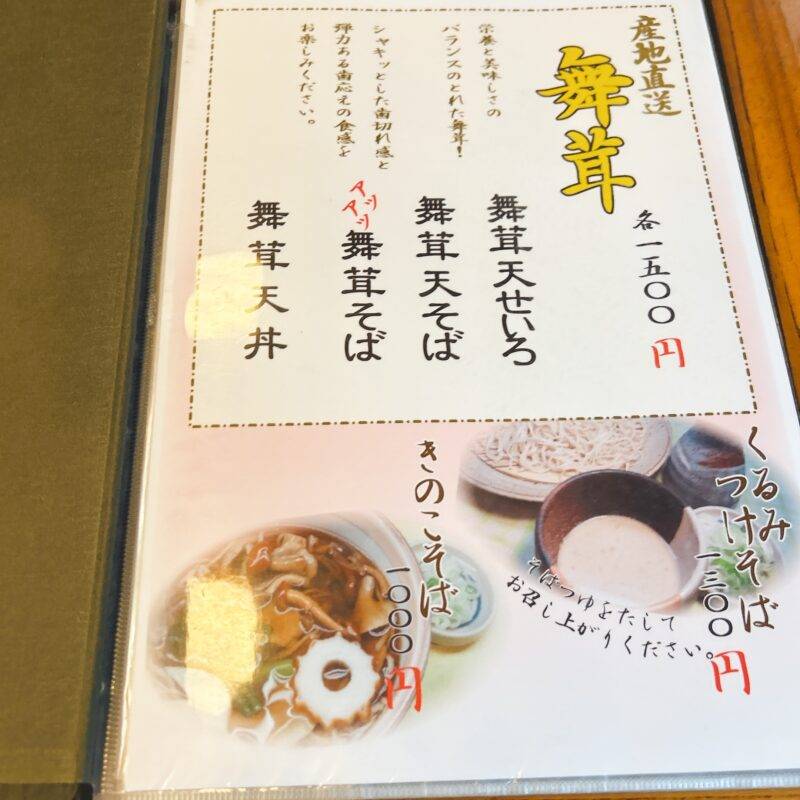 産地直送
舞茸
各一五〇〇円
栄養と美味しさの
バランスのとれた舞茸！
シャキッとした歯切れ感と
弾力ある歯応えの食感を
お楽しみください。
舞茸天せいろ
舞茸天そば
アツアツ舞茸そば
舞茸天丼
くるみつけそば
一三〇〇円
そばつゆをたして
お召し上がりください。
きのこそば
一〇〇〇円